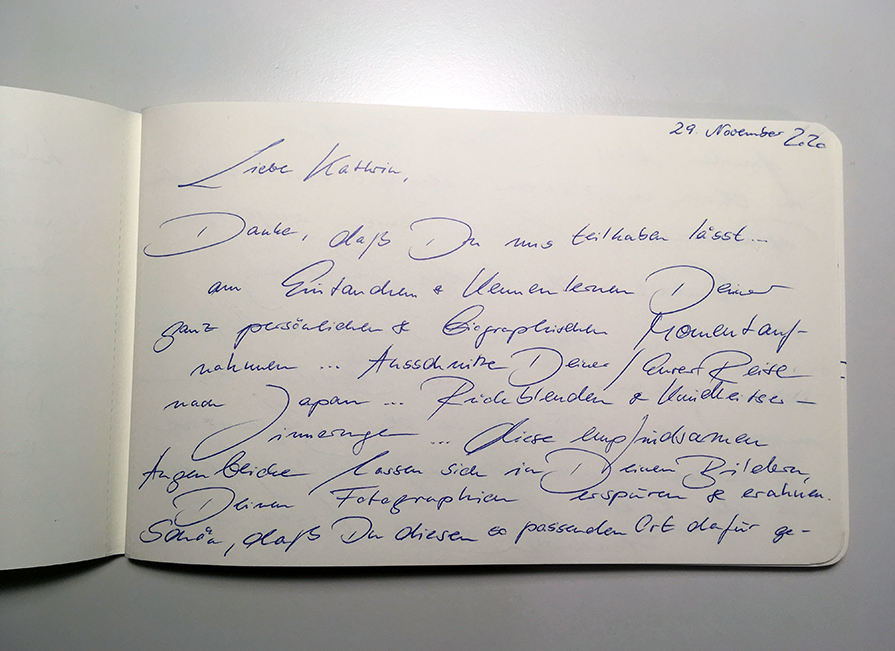 29. November 2020
Liebe Kathrin,
Danke, daß Du uns teilhaben lässt...
am Eintauchen & Kennenlernen Deiner
ganz persönlichen & biographischen Momentauf-
nahmen ... Ausschnitte Deiner / Eurer Reise
nach Japan ... Rückblenden & Kindheitser-
innerungen ... diese empfindsamen
Augenblicke lassen sich in Deinen Bildern,
Deinen Fotographien erspüren & erahnen.
Schön, daß Du diesen so passenden Ort dafür ge-